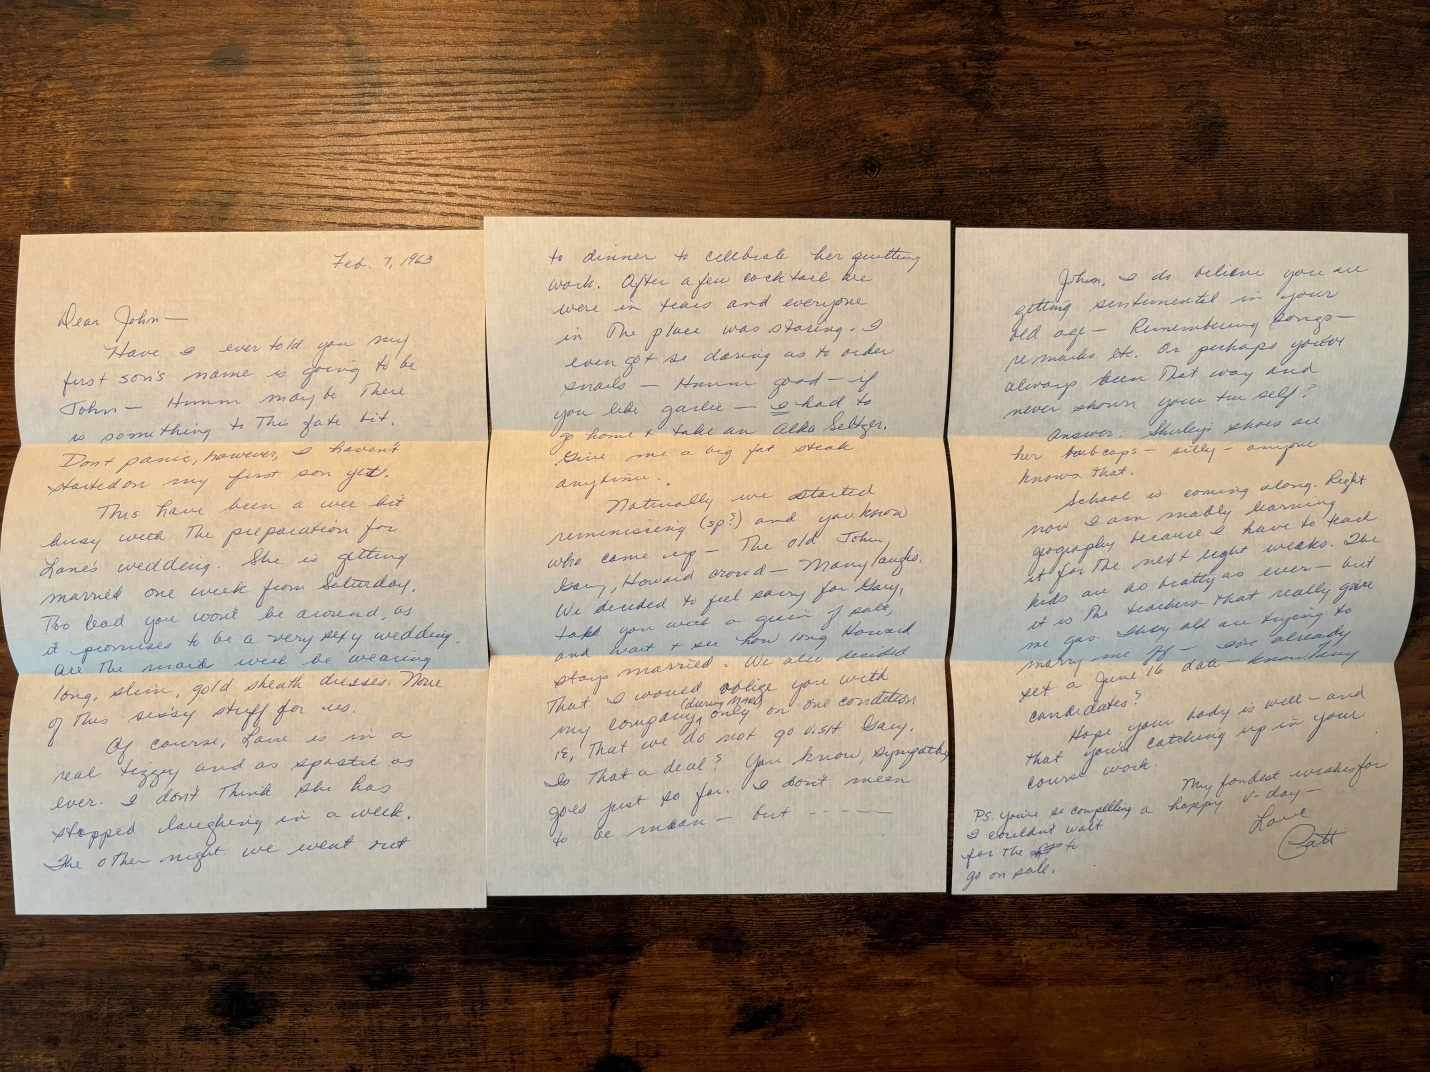 Feb. 7, 1963
Dear John—
Have I ever told you my
first son's name is going to be
John— Hmmm maybe There
is something to This fate bit.
Don't panic, however, I haven't
started on my first son yet.
This have been a wee bit
busy with The preparation for
Lane's wedding. She is getting
married one week from Saturday.
Too bad you won't be around, as
it promises to be a very sexy wedding.
All the maids will be wearing
long, slim, gold sheath dresses. None
of this sissy stuff for us.
Of course, Lane is in a
real tizzy and as spastic as
ever. I don't Think she has
stopped laughing in a week.
The other night we went out
to dinner to celebrate her quitting
work. After a few cocktails we
were in tears and everyone
in The place was staring. I
even got so daring as to order
snails — Hmmm good — if
you like garlic — I had to
go home & take an Alka Seltzer.
Give me a big fat steak
anytime.
Naturally we started
reminiscing (sp?) and you know
who came up — The old John,
Gary, Howard crowd — Many laughs.
We decided to feel sorry for Gary,
take you with a grain of salt,
and wait & see how long Howard
stays married. We also decided
That I would oblige you with
my company (during Mardi) only on one condition
IE, That we do not go visit Gary.
Is That a deal? You know, sympathy
goes just so far. I don't mean
to be mean — but -----
John, I do believe you are
getting sentimental in your
old age — Remembering songs—
remarks etc. Or perhaps you've
always been That way and
never shown your true self?
Answer: Shirley's shoes are
her caps — silly — anyone
knows That.
School is coming along. Right
now I am madly learning
geography because I have to teach
it for The next eight weeks. The
kids are as bratty as ever — but
it is The teachers That really give
me gas. They all are trying to
marry me off — I've already
set a June 16 date — know any
candidates?
Hope your body is well — and
That you're catching up in your
course work.
My fondest wishes for
a happy V-day—
Love
Patt
PS. You're so compelling
I couldn't wait
for The to
go on sale.